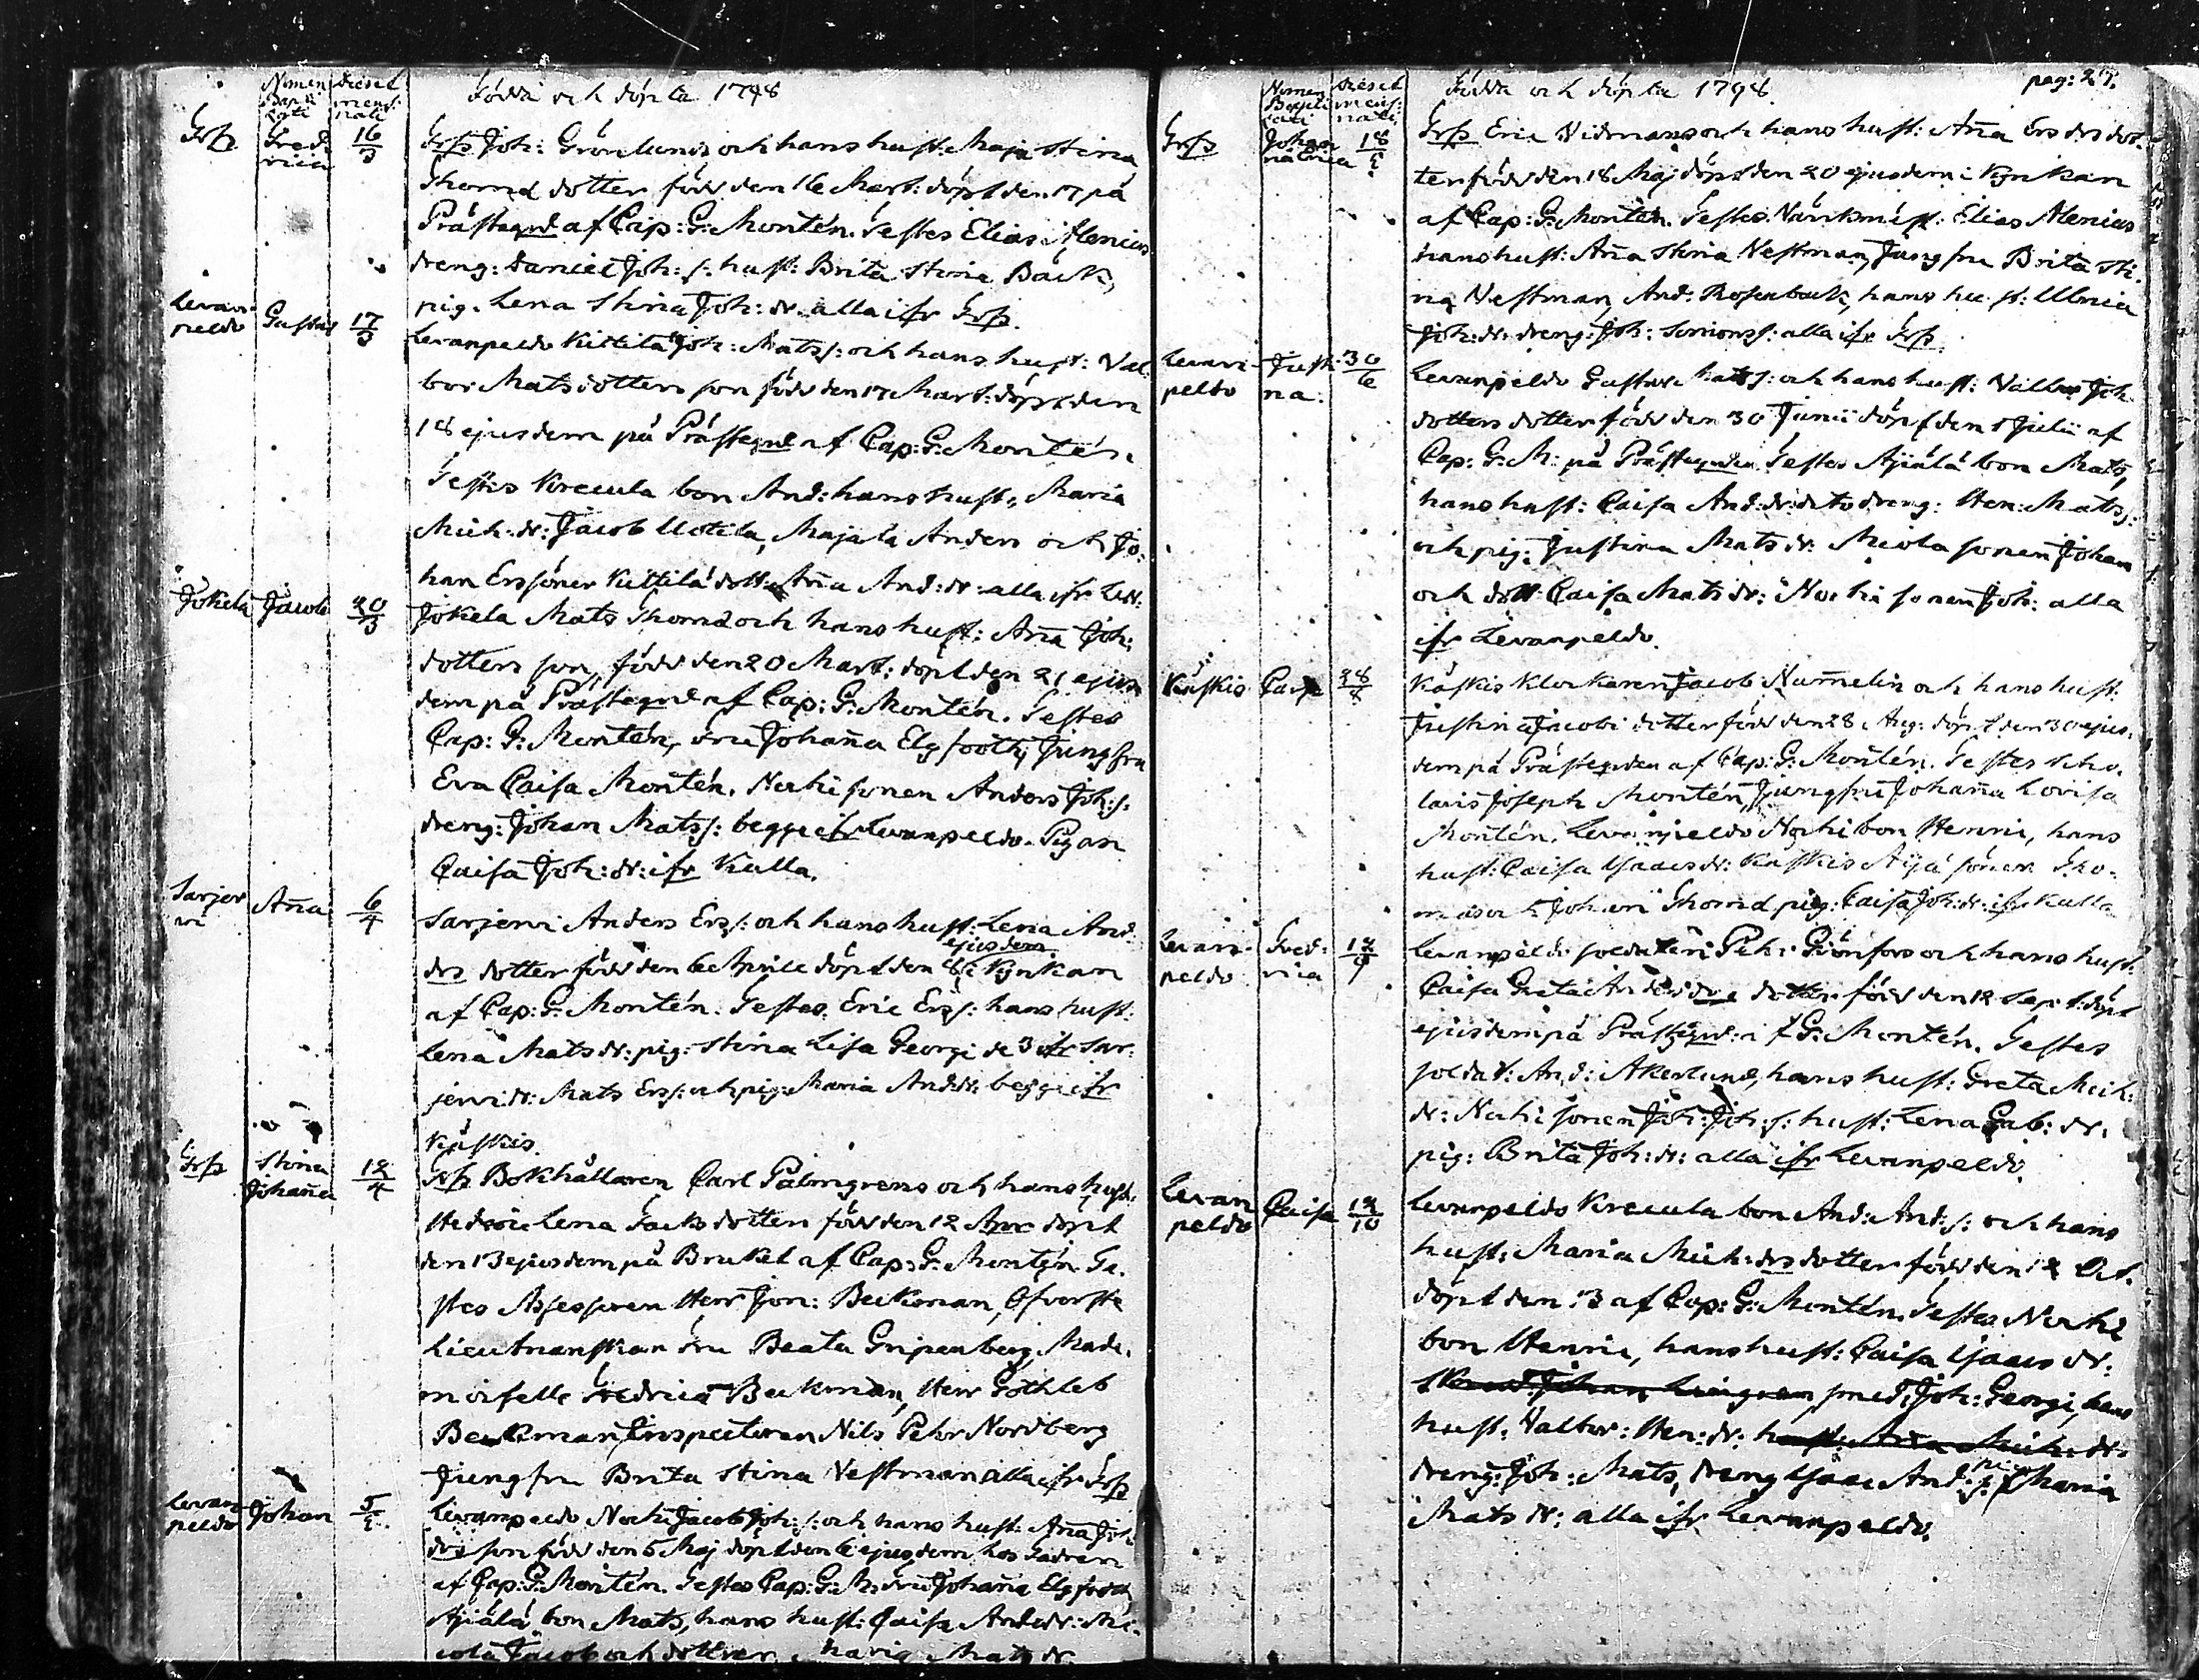 Födda och döpta 1798
Nomen Bapti zati
dies et mens: nati
Frss Fred rica 16/3
Frss Joh: Grönlunds och hans hust. Maja Stina
Thomæ dotter född den 16 Mart: döpt den 17 på
Prästegrd af Cap: G: Montén. Testes Elias Alenius
dreng: Daniel Joh: s: hust: Brita Stina Bäck,
pig. Lena Stina Joh: dr. alla ifr Frss.
Levan peldo Gustav 17/3
Levanpeldo Kittilä Joh: Mats s: och hans hust: Val
bor Matsdotters son född den 17 Mart: döpt den
18 ejusdem på Prästegrd af Cap: G: Montén.
Testes Krecula bon And: hans hust: Maria
Mich: dr: Jacob Uotila, Majala Anders och Jo-
han Erssöner Kittilä dott. Aña And: dr: alla ifr Lev:
Jokela Jacob 20/3
Jokela Mats Thomæ och hans hust: Aña Joh:
dotters son, född den 20 Mart: döpt den 21 ejus
dem på Prästegrd af Cap: G: Montén. Testes
Cap: G: Montén, fru Johaña Elgfooth, Jungfru
Eva Caisa Montén. Nocki sonen Anders Joh: s.
dreng: Johan Mats s: begge ifr Levanpeldo. Pigan
Caisa Joh: dr: ifr Kulla.
Sarjer vi Aña 6/4
Sarjervi Anders Ers s: och hans hust: Lena And-
drs dotter född den 6 Aprile döpt den 8 ejusdem i Kyrkan
af Cap: G: Montén. Testes. Eric Ers s: hans hust:
Lena Mats dr: pig: Stina Lisa Georgi de 3 ifr Sar-
jervi dr: Mats Ers s: och pig: Maria And: dr: begge ifr
Käskis.
Frss Stina Johaña 12/4
Frss Bokhållaren Carl Palmgrens och hans hust.
Hedvic Lena Jacobsdotters född den 12 Apr döpt
den 13 ejusdem på Bruket af Cap: G: Montén. Te-
stes Assessoren Herr Jon: Beckman, Öfverste
Lieutnanskan fru Beata Gripenberg, Made-
moiselle Fredrica Beckman, Herr Gothleb
Beckman, Inspectoren Nils Pehr Nordberg
Jungfru Brita Stina Vestman alla ifr Frss
Levan peldo Johan 5/5
Levanpeldo Nocki Jacob Joh: s: och hans hust: Aña Joh:
drs son född den 5 Maj döpt den 6 ejusdem hos fadren
af Cap: G: Montén. Testes Cap: G: M: fru Johaña Elgfooth
Ajälä bon Mats, hans hust: Caisa And: dr: Mi-
cola Jacob och dottren Maria Mats dr.
Födda och döpta 1798. pag: 27.
Nomen Bapti zati
dies et mens: nati
Frss Johan na 18/5
Frss Eric Vidmans och hans hust: Aña Ers drs dot-
ter född den 18 Maj döpt den 20 ejusdem i Kyrkan
af Cap: G: Montén. Testes Värkmäst: Elias Alenius
hans hust: Aña Stina Vestman, Jungfru Brita Sti-
na Vestman, And: Rosenback, hans hust: Ulrica
Joh: dr. dreng: Joh: Simons s: alla ifr Frss.
Levan- peldo Justi na: 30/6
Levanpeldo Gustav Mats s: och hans hust: Valbor Joh
dotters dotter född den 30 Junii döpt den 1 Julii af
Cap: G: M: på Prästegrden. Testes Ajälä bon Mats,
hans hust: Caisa And: dr: dito dreng: Hen: Mats s:
och pig. Justina Mats dr. Micola sonen Johan
och dott: Caisa Mats dr: Nocki sonen Joh: alla
ifr Levanpeldo.
Käskis Caisa 28/8
Käskis Klockaren Jacob Numelin och hans hust.
Justina Jacobi dotter född den 28 Aug: döpt den 30 ejus-
dem på Prästegrden af Cap: G: Montén. Testes Scho-
laris Joseph Montén, Jungfru Johaña Lovisa
Montén. Levanpeldo Nocki bon Henric, hans
hust: Caisa Isaacs dr: Käskis Aijä sönen Tho-
mas och Johan Thomæ pig: Caisa Joh: dr: ifr Kulla
Levan- peldo Fred- rica 12/9
Levanpeldo soldaten Pehr Grönfors och hans hust.
Caisa Greta Anders drs dotter född den 12 Sept: döpt
ejusdem på Prästegrd: af G: Montén. Testes
soldat: And: Åkerlund, hans hust: Greta Mich:
dr: Nocki sonen Joh: Joh: s: hust: Lena Gab: dr.
pig: Brita Joh: dr: alla ifr Levanpeldo.
Levan peldo Caisa 12/10
Levanpeldo Krecula bon And: And: s: och hans
hust: Maria Mich: drs dotter född den 12 Oct.
döpt den 13 af Cap: G: Montén. Testes Nocki
bon Henric, hans hust: Caisa Isaacs dr.
smed: Joh: Georgi, hans
hust: Valbor: Hen: dr: hust: Aña Mich: dr.
dreng: Joh: Mats, dreng Isaac And: s: pig Maria
Mats dr: alla ifr Levanpeldo.